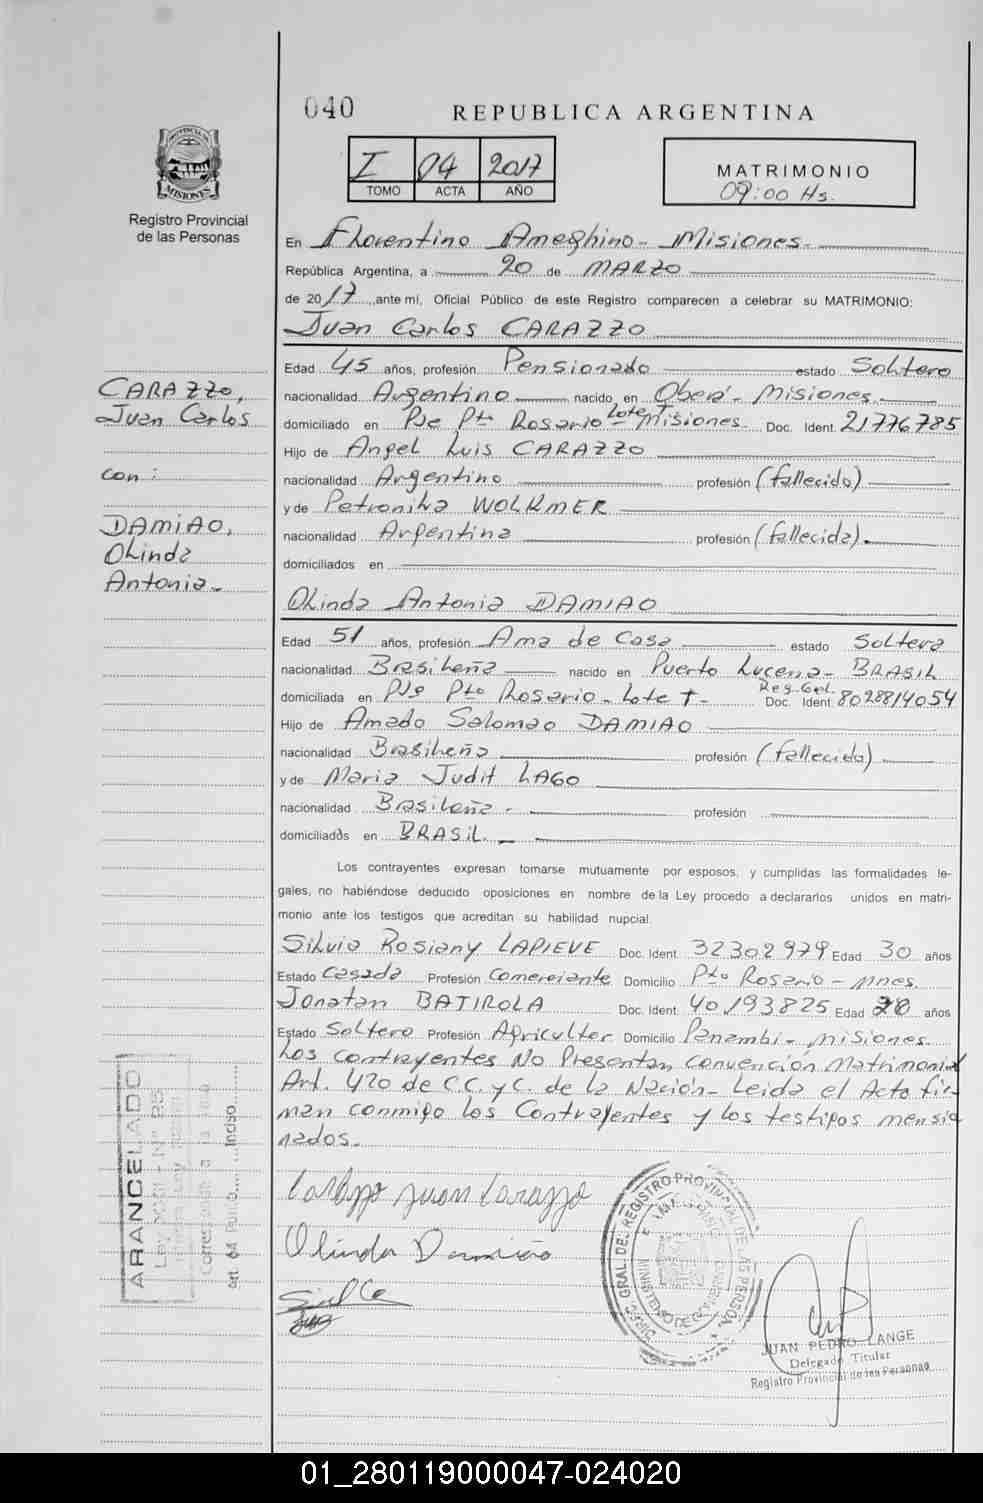 040
REPUBLICA ARGENTINA
PROVINCIA DE
MISIONES
Registro Provincial
de las Personas
I 04 2017
TOMO ACTA AÑO
MATRIMONIO
09:00 Hs.
En Florentino Ameghino - Misiones.
República Argentina, a 20 de MARZO
de 2017, ante mí, Oficial Público de este Registro comparecen a celebrar su MATRIMONIO:
Juan Carlos CARAZZO
CARAZZO,
Juan Carlos
con:
DAMIAO,
Olinda
Antonia-
Edad 45 años, profesión Pensionado estado Soltero
nacionalidad Argentino nacido en Oberá - Misiones.
domiciliado en Pje Pto Rosario - Lote T. Misiones. Doc. Ident. 21776785
Hijo de Angel Luis CARAZZO
nacionalidad Argentino profesión (fallecido)
y de Petronila WOLKMER
nacionalidad Argentina profesión (fallecida).
domiciliados en
Olinda Antonia DAMIAO
Edad 51 años, profesión Ama de Casa estado Soltera
nacionalidad Brasileña nacido en Puerto Lucena - BRASIL
domiciliada en Pje Pto Rosario - Lote T - Reg. Gel. Doc. Ident. 8028814054
Hijo de Amado Salomao DAMIAO
nacionalidad Brasileña profesión (fallecido)
y de Maria Judit LAGO
nacionalidad Brasileña - profesión
domiciliados en BRASIL.
Los contrayentes expresan tomarse mutuamente por esposos, y cumplidas las formalidades le-
gales, no habiéndose deducido oposiciones en nombre de la Ley procedo a declararlos unidos en matri-
monio ante los testigos que acreditan su habilidad nupcial.
Silvia Rosiany LAPIEVE Doc. Ident. 32302979 Edad 30 años
Estado Casada Profesión Comerciante Domicilio Pto Rosario - Mnes.
Jonatan BATIROLA Doc. Ident. 40193825 Edad 20 años
Estado Soltero Profesión Agricultor Domicilio Panambi - Misiones.
Los contrayentes No Presentan Convención Matrimonial
Art. 420 de C.C. y C. de la Nación - Leida el Acta fir-
man conmigo los Contrayentes y los testigos mensio
nados.
Carazzo Juan Carazzo
Olinda Damião
ARANCELADO
Inciso
JUAN PEDRO LANGE
Delegado Titular
Registro Provincial de las Personas
01_280119000047-024020